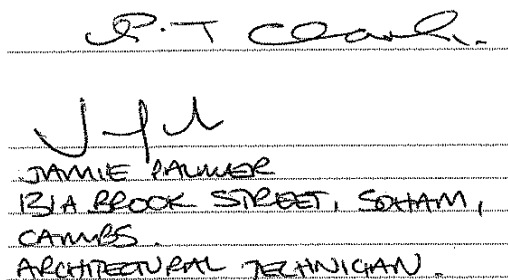 R.T Clark.
JAMIE PALMER
131A BROOK STREET, SOHAM,
CAMBS.
ARCHITECTURAL TECHNICIAN.